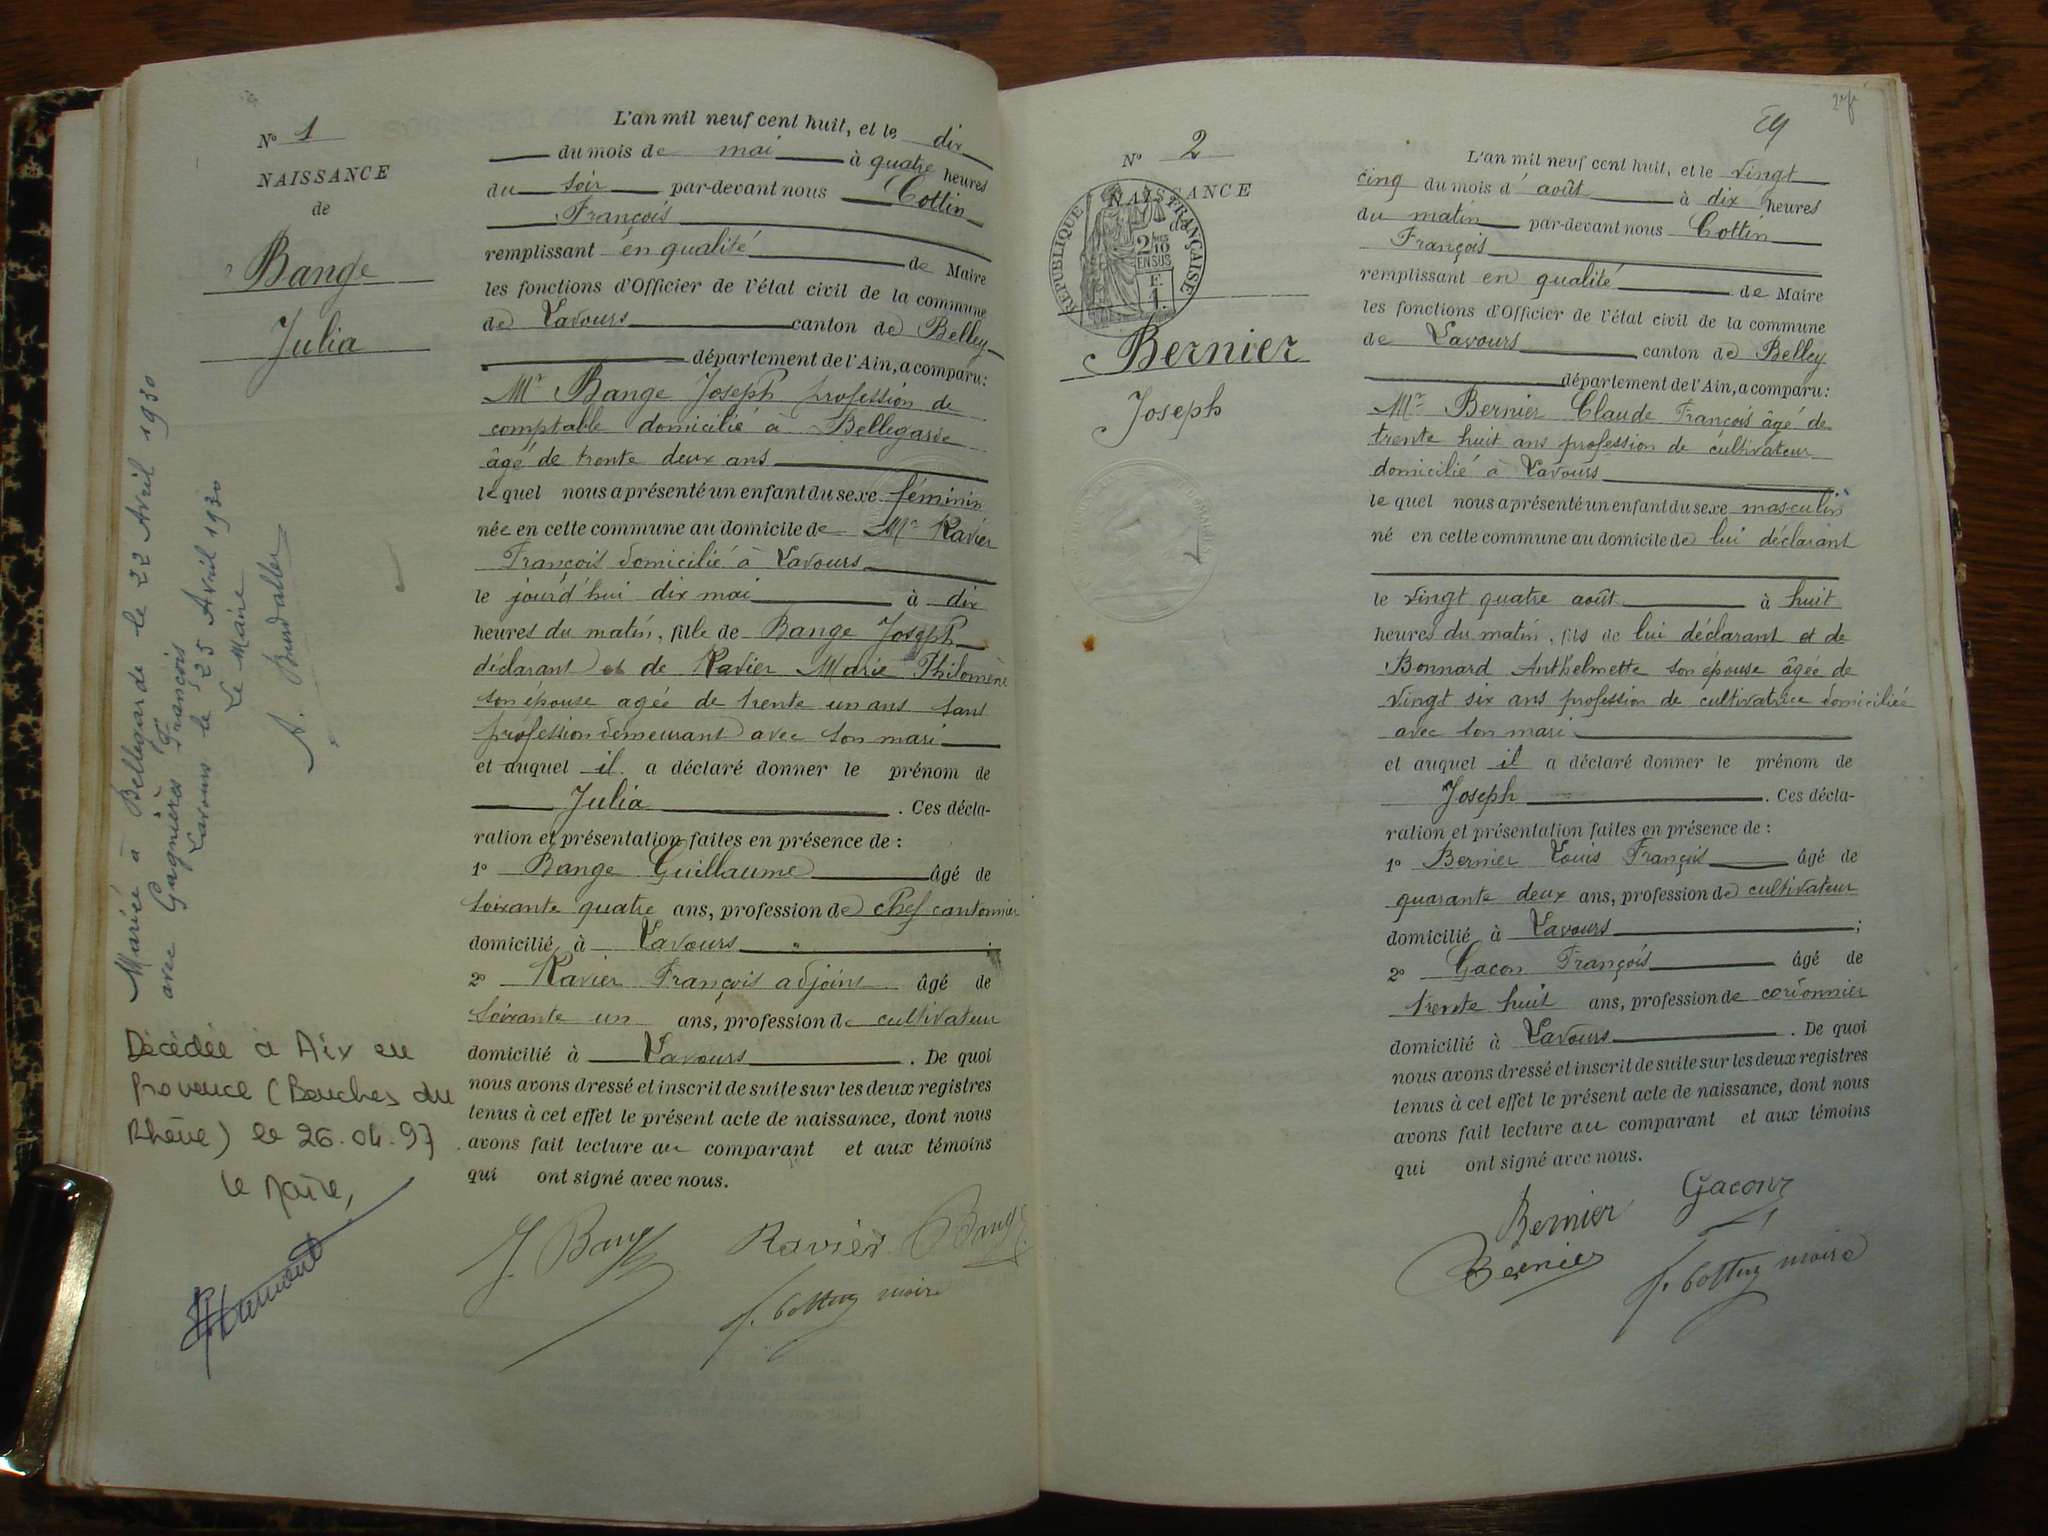 N° 1
NAISSANCE
de
Bange
Julia
Mariée à Bellegarde le 22 Avril 1930
avec Gagnières François
Lavours le 25 Avril 1930
Le Maire
Décédée à Aix en
Provence (Bouches du
Rhône) le 26.04.97
Le Maire,
L'an mil neuf cent huit, et le dix
du mois de mai à quatre heures
du soir par-devant nous Cottin
François
remplissant en qualité de Maire
les fonctions d'Officier de l'état civil de la commune
de Lavours canton de Belley
département de l'Ain, a comparu:
Mr Bange Joseph profession de
comptable domicilié à Bellegarde
âgé de trente deux ans
lequel nous a présenté un enfant du sexe féminin
née en cette commune au domicile de Mr Ravier
François domicilié à Lavours
le jourd'hui dix mai à dix
heures du matin, fille de Bange Joseph
déclarant et de Ravier Marie Philomène
son épouse agée de trente un ans sans
profession demeurant avec son mari
et auquel il a déclaré donner le prénom de
Julia. Ces décla-
ration et présentation faites en présence de :
1° Bange Guillaume âgé de
soixante quatre ans, profession de chef cantonnier
domicilié à Lavours ;
2° Ravier François adjoint âgé de
soixante un ans, profession de cultivateur
domicilié à Lavours. De quoi
nous avons dressé et inscrit de suite sur les deux registres
tenus à cet effet le présent acte de naissance, dont nous
avons fait lecture au comparant et aux témoins
qui ont signé avec nous.
J. Bange Ravier Bange
f. Cottin maire
29
N° 2
NAISSANCE
de
RÉPUBLIQUE FRANÇAISE
2/10
EN SUS
F.
1.
Bernier
Joseph
L'an mil neuf cent huit, et le vingt
cinq du mois d'août à dix heures
du matin par-devant nous Cottin
François
remplissant en qualité de Maire
les fonctions d'Officier de l'état civil de la commune
de Lavours canton de Belley
département de l'Ain, a comparu:
Mr Bernier Claude François âgé de
trente huit ans profession de cultivateur
domicilié à Lavours
lequel nous a présenté un enfant du sexe masculin
né en cette commune au domicile de lui déclarant
le vingt quatre août à huit
heures du matin, fils de lui déclarant et de
Bonnard Anthelmette son épouse âgée de
vingt six ans profession de cultivatrice domiciliée
avec son mari
et auquel il a déclaré donner le prénom de
Joseph. Ces décla-
ration et présentation faites en présence de :
1° Bernier Louis François âgé de
quarante deux ans, profession de cultivateur
domicilié à Lavours ;
2° Gacon François âgé de
trente huit ans, profession de cordonnier
domicilié à Lavours. De quoi
nous avons dressé et inscrit de suite sur les deux registres
tenus à cet effet le présent acte de naissance, dont nous
avons fait lecture au comparant et aux témoins
qui ont signé avec nous.
Bernier Gacon
Bernier f. Cottin maire